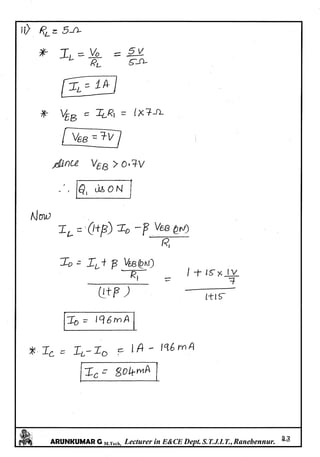 ii) RL = 5Ω
* IL = Vo/RL = 5V/5Ω
IL = 1A
* VEB = ILR1 = 1x7Ω
VEB = 7V
since VEB > 0.7V
∴ Q1 is ON
Now
IL = (1+β) Io - β VEB(ON)/R1
Io = (IL + β VEB(ON)/R1)/(1+β) = (1 + 15 x 1V/7)/(1+15)
Io = 196mA
* IC = IL - Io = 1A - 196mA
IC = 804mA
ARUNKUMAR G M.Tech, Lecturer in E&CE Dept. S.T.J.I.T., Ranebennur.